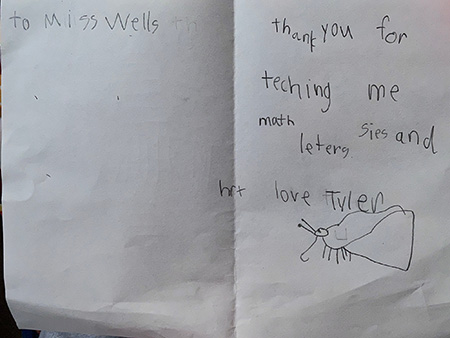 to Miss Wells th
thank you for
teching me
math
leters sies and
hrt love Tyler